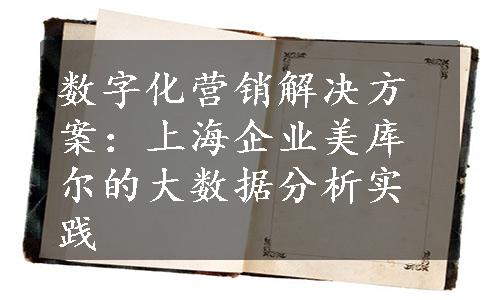 数字化营销解决方
案：上海企业美库
尔的大数据分析实
践